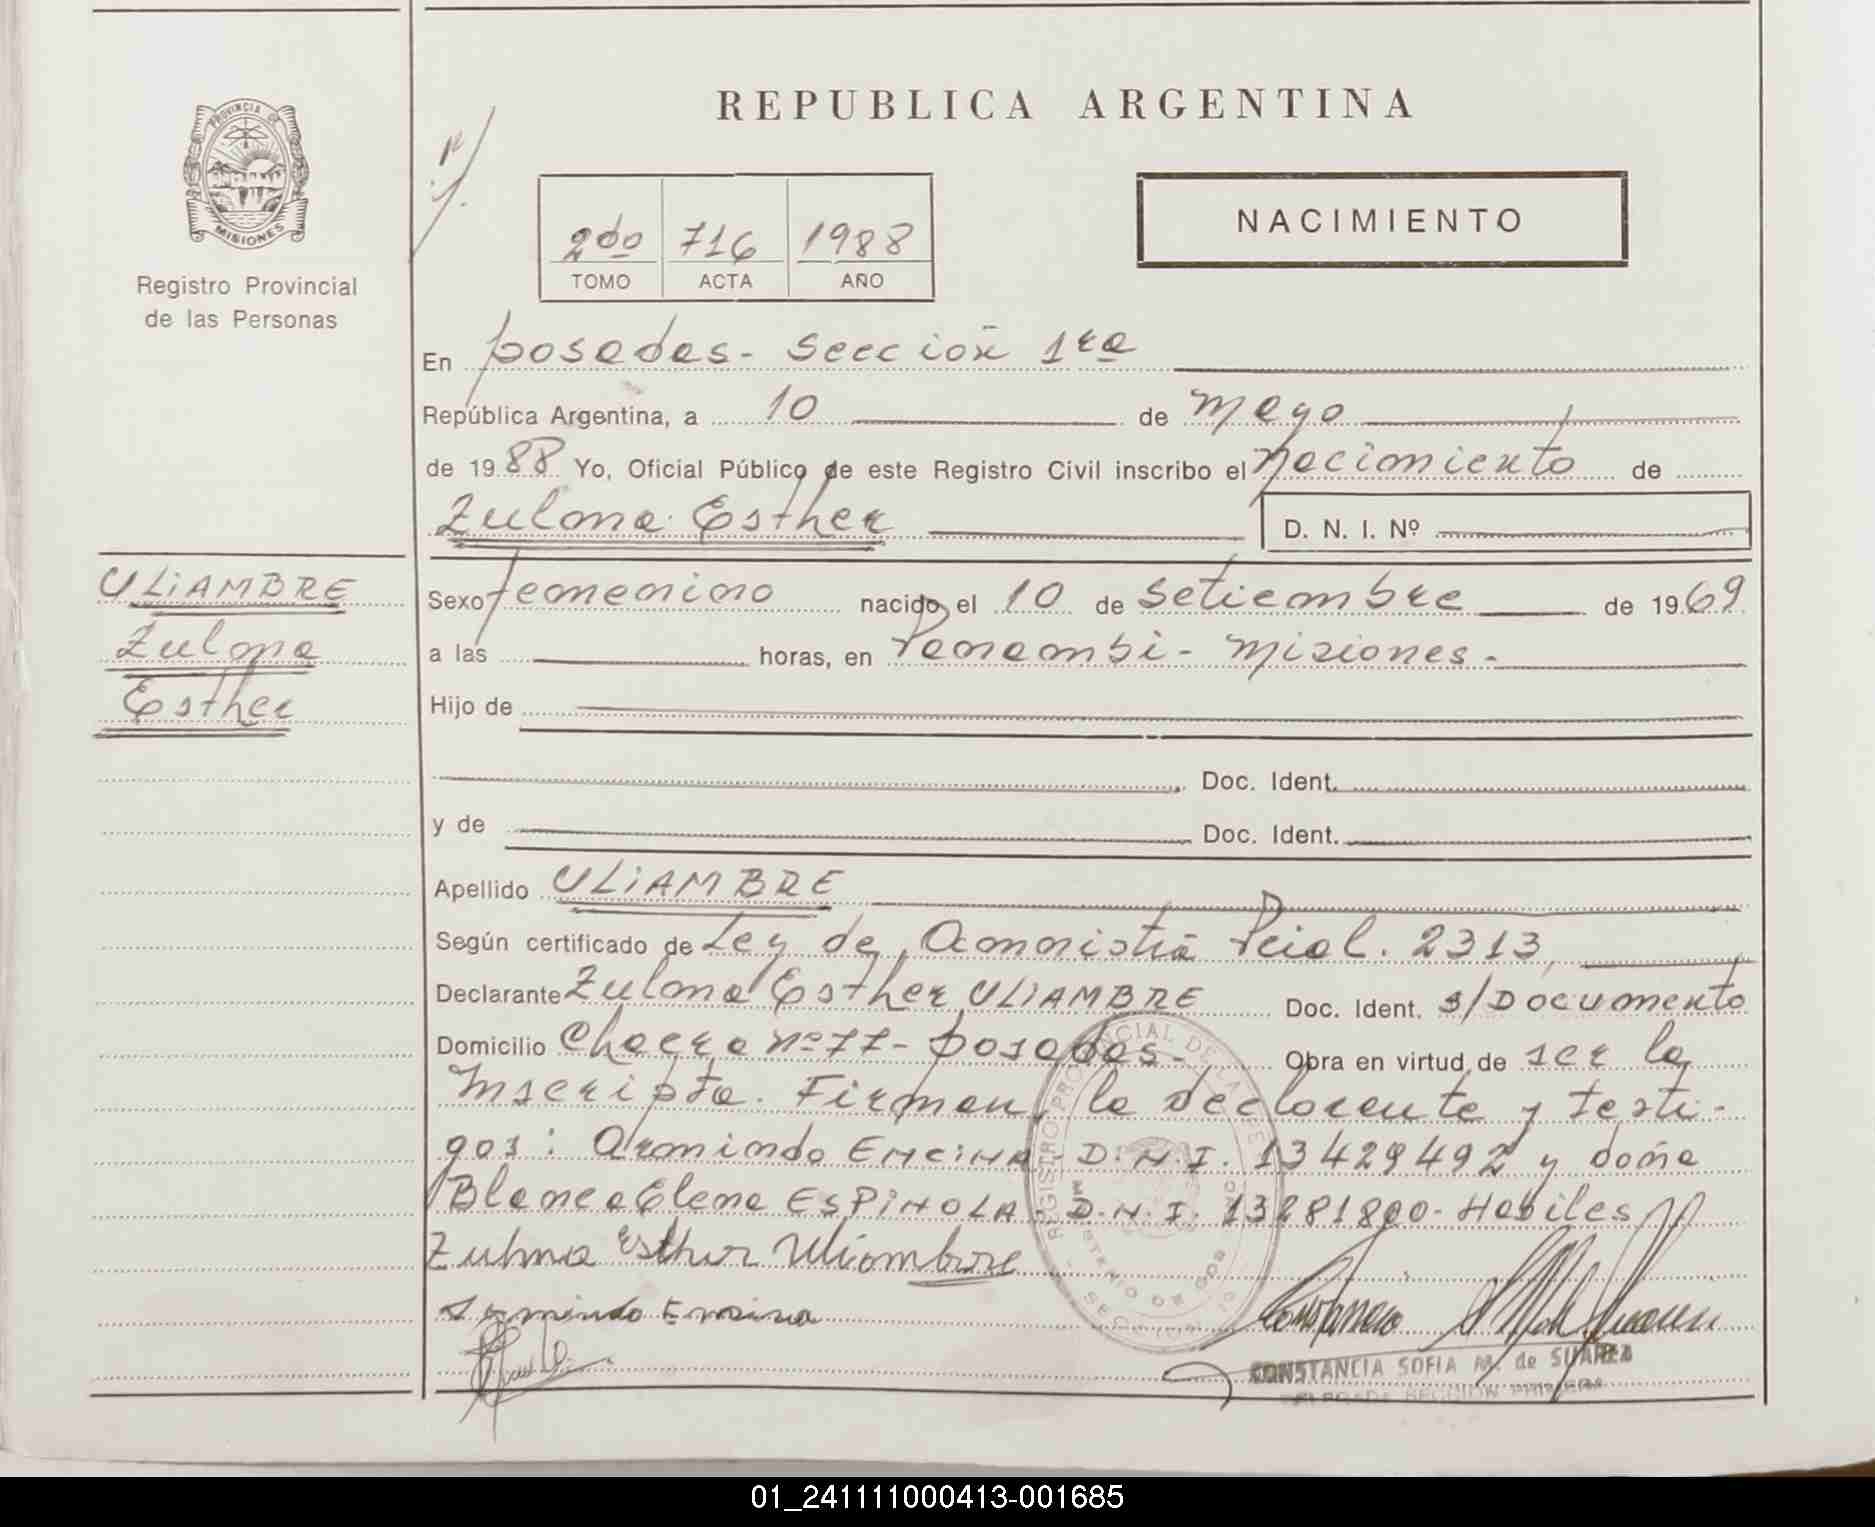 REPUBLICA ARGENTINA
PROVINCIA DE
MISIONES
Registro Provincial
de las Personas
2do 716 1988
TOMO ACTA AÑO
NACIMIENTO
En Posadas - Sección 1ra
República Argentina, a 10 de Mayo
de 1988 Yo, Oficial Público de este Registro Civil inscribo el Nacimiento de
Zulma Esther D. N. I. Nº
ULIAMBRE
Zulma
Esther
Sexo femenino nacido el 10 de Setiembre de 1969
a las horas, en Panambi - Misiones -
Hijo de
Doc. Ident.
y de Doc. Ident.
Apellido ULIAMBRE
Según certificado de Ley de Amnistía Pcial. 2313,
Declarante Zulma Esther ULIAMBRE Doc. Ident. S/Documento
Domicilio Chacra Nº 77 - Posadas - Obra en virtud de ser la
Inscripta. Firman, la declarante y testi-
gos: Armindo ENCINA D.N.I. 13429492 y doña
Blanca Elena ESPINOLA - D.N.I. 13281800 - Habiles
Zulma Esther Uliambre
Armindo Encina
CONSTANCIA SOFIA M. de SUAREZ
01_241111000413-001685